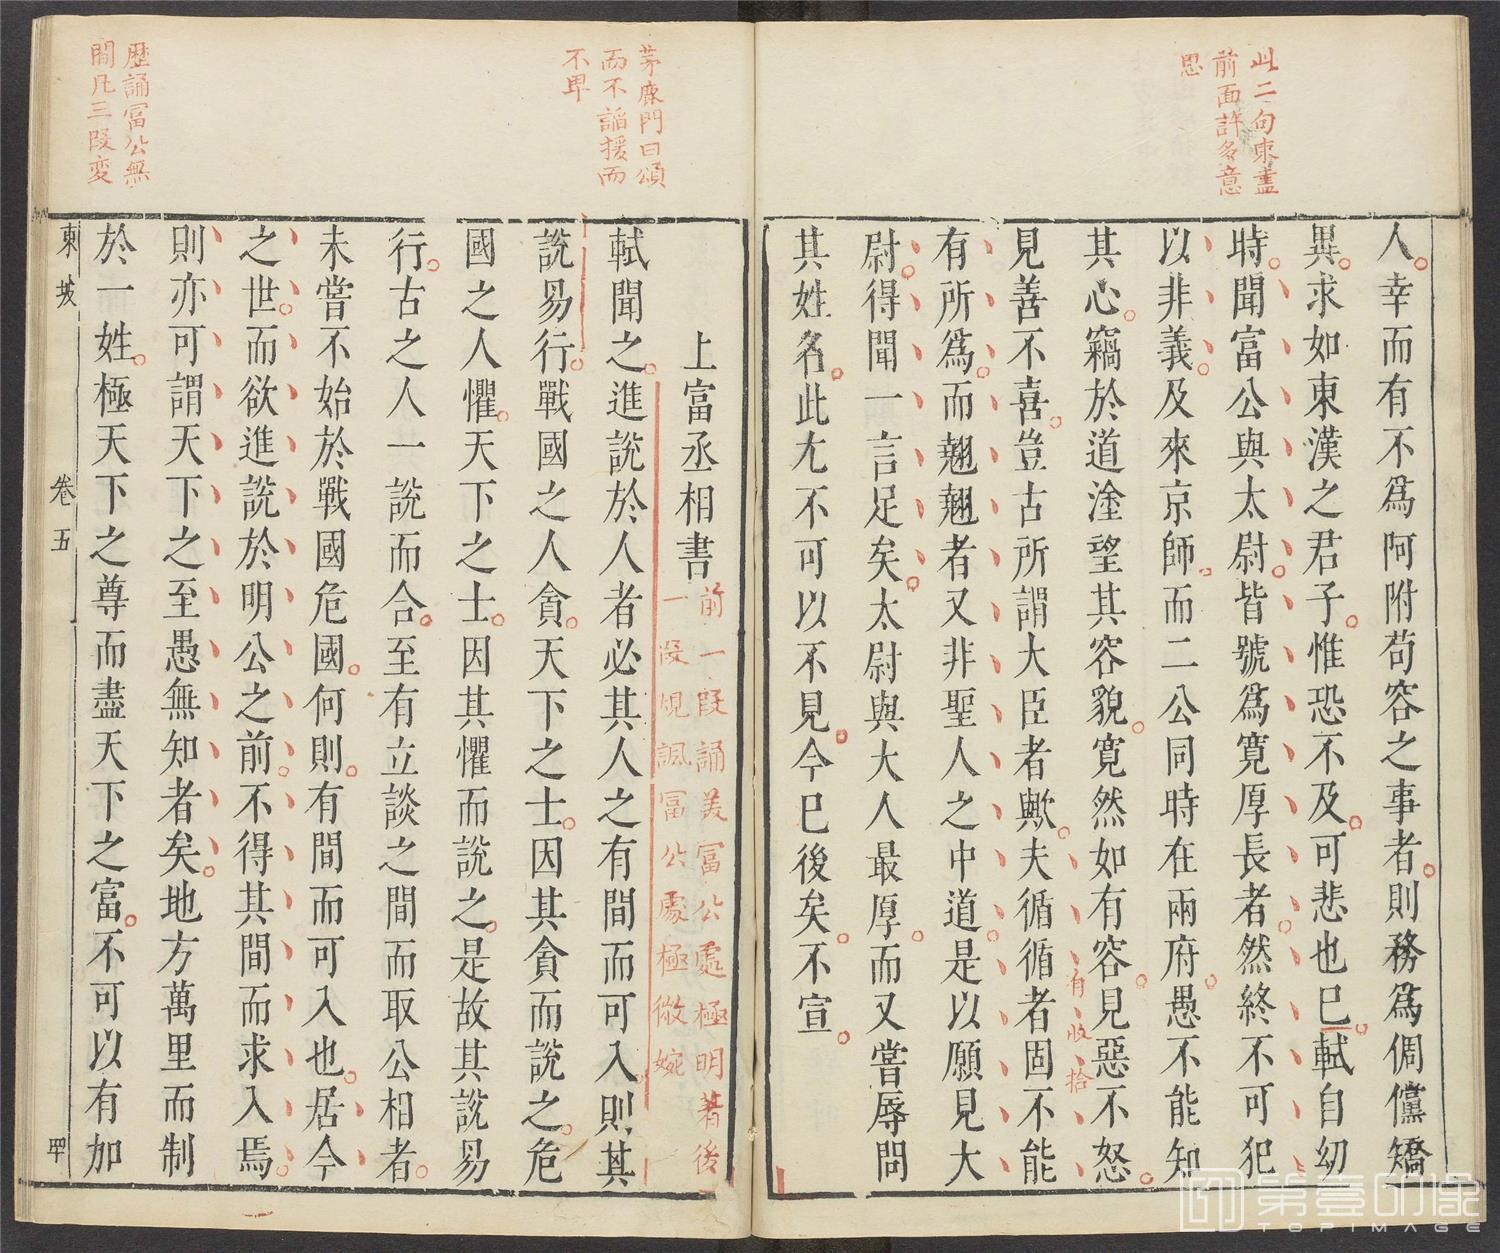 此二句束盡
前面許多意
思
人幸而有不爲阿附苟容之事者則務爲倜儻矯
異求如東漢之君子惟恐不及可悲也已軾自幼
時聞富公與太尉皆號爲寬厚長者然終不可犯
以非義及來京師而二公同時在兩府愚不能知
其心竊於道塗望其容貌寬然如有容見惡不怒
有收拾
見善不喜豈古所謂大臣者歟夫循循者固不能
有所爲而翹翹者又非聖人之中道是以願見大
尉得聞一言足矣太尉與大人最厚而又嘗辱問
其姓名此尤不可以不見今已後矣不宣
茅鹿門曰頌
而不諂援而
不卑
上富丞相書
前一段誦美富公處極明著後
一段規諷富公處極微婉
軾聞之進說於人者必其人之有間而可入則其
說易行戰國之人貪天下之士因其貪而說之危
國之人懼天下之士因其懼而說之是故其說易
行古之人一說而合至有立談之間而取公相者
未嘗不始於戰國危國何則有間而可入也居今
之世而欲進說於明公之前不得其間而求入焉
則亦可謂天下之至愚無知者矣地方萬里而制
於一姓極天下之尊而盡天下之富不可以有加
歷誦富公無
間凡三段变
東坡
卷五
第壹印像
TOPIMAGE